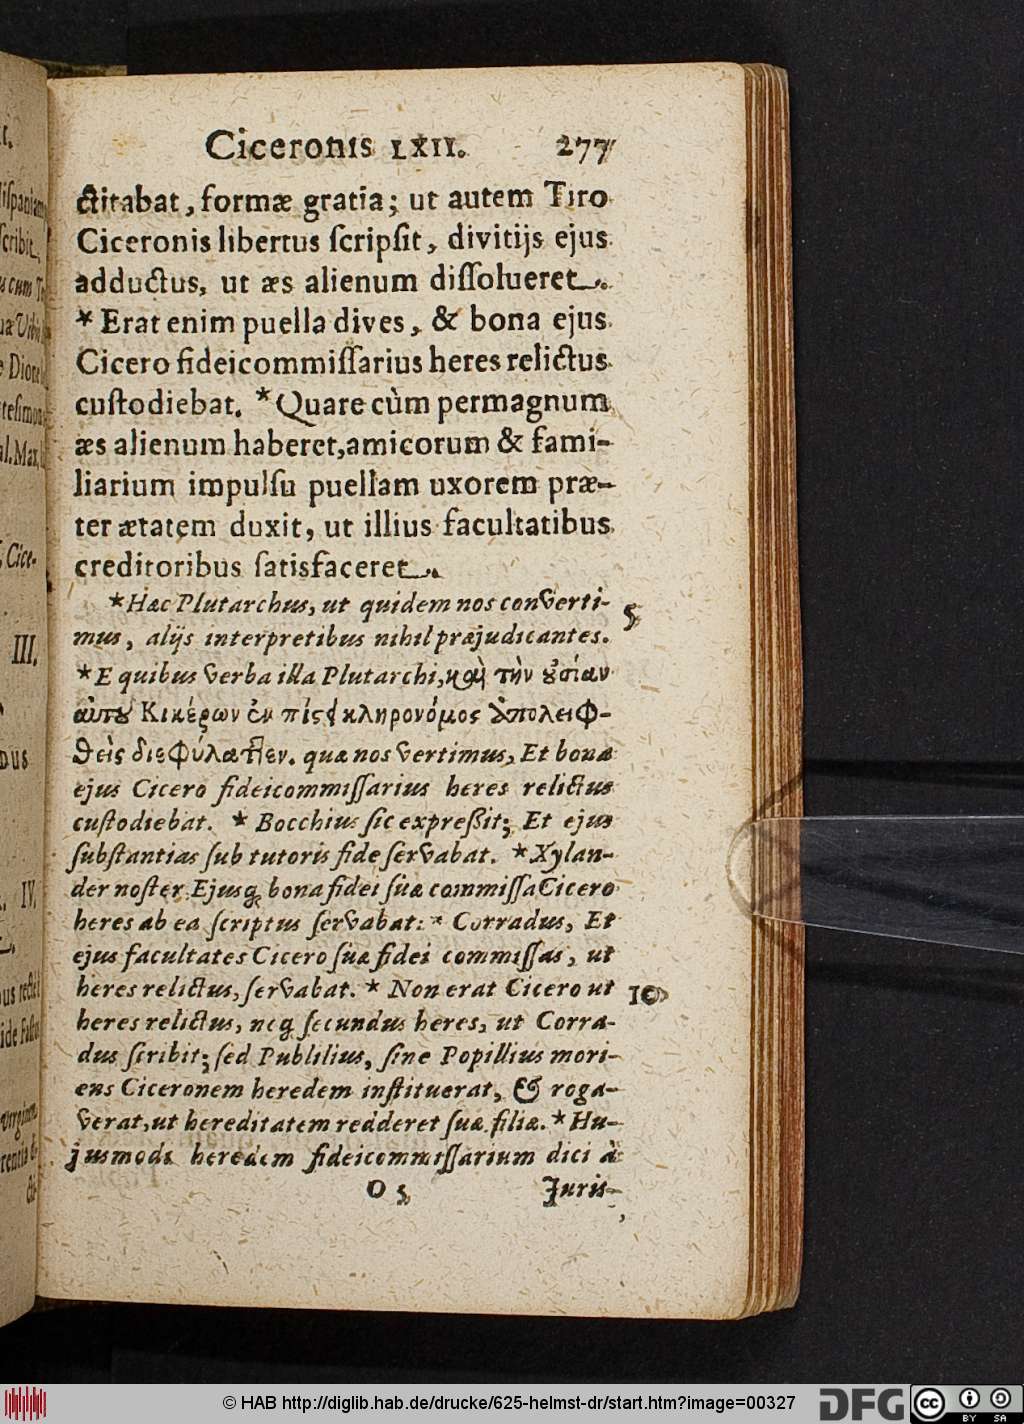 Ciceronis LXII. 277
ctitabat, formæ gratia; ut autem Tiro
Ciceronis libertus ſcripſit, divitijs ejus
adductus, ut æs alienum diſſolueret.
* Erat enim puella dives, & bona ejus
Cicero fideicommiſſarius heres relictus
cuſtodiebat. * Quare cùm permagnum
æs alienum haberet, amicorum & fami-
liarium impulſu puellam uxorem præ-
ter ætatem duxit, ut illius facultatibus
creditoribus ſatisfaceret.
* Hæc Plutarchus, ut quidem nos converti- 5
mus, alijs interpretibus nihil præjudicantes.
* E quibus verba illa Plutarchi, καὶ τὴν ȣ̓σίαν
αὐτȣ͂ Κικέρων ἐν πίςει κληρονόμος ἀπολειφ-
θεὶς διεφύλαττεν. quæ nos vertimus, Et bona
ejus Cicero fideicommiſſarius heres relictus
cuſtodiebat. * Bocchius ſic expreßit; Et ejus
ſubſtantias ſub tutoris fide ſervabat. * Xylan-
der noſter: Ejusq; bona fidei ſuæ commiſſa Cicero
heres ab ea ſcriptus ſervabat: * Corradus, Et
ejus facultates Cicero ſuæ fidei commiſſas, ut
heres relictus, ſervabat. * Non erat Cicero ut 10
heres relictus, neq; ſecundus heres, ut Corra-
dus ſcribit; ſed Publilius, ſine Popillius mori-
ens Ciceronem heredem inſtituerat, & roga-
verat, ut hereditatem redderet ſuæ filiæ. * Hu-
jusmodi heredem fideicommiſſarium dici à
O 5 Juris-
III.
IV.
© HAB http://diglib.hab.de/drucke/625-helmst-dr/start.htm?image=00327 DFG cc BY SA